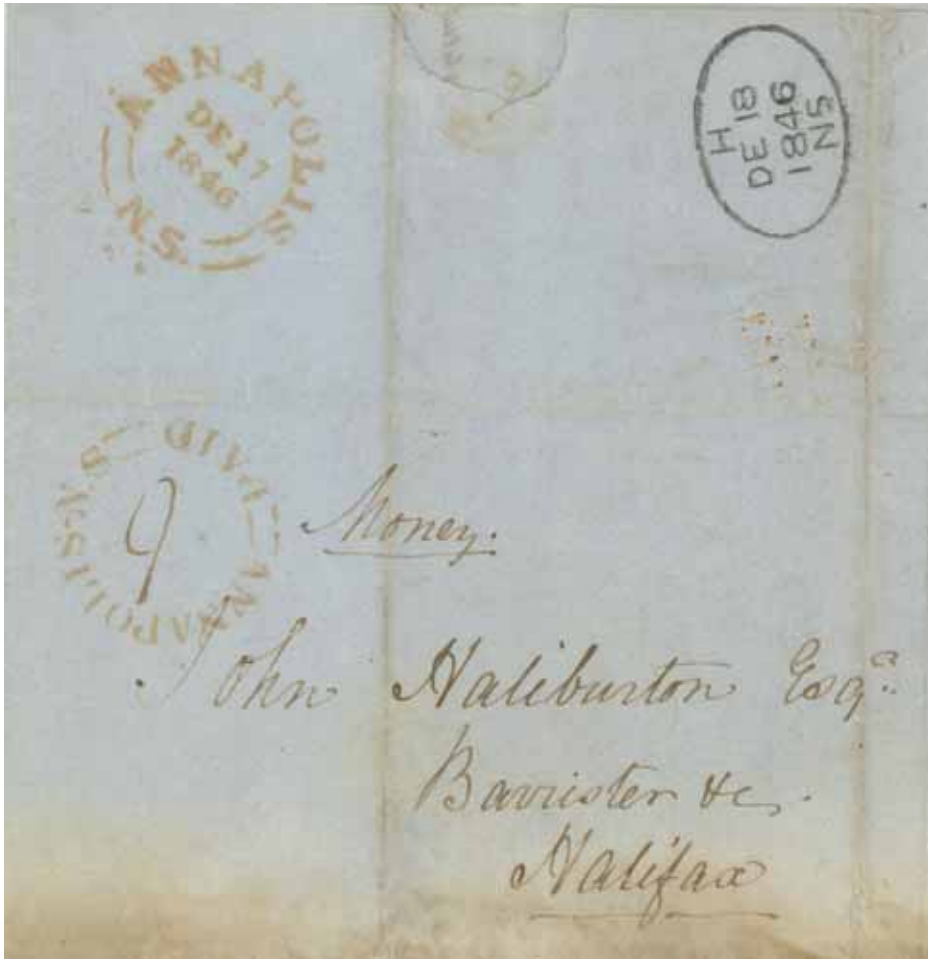 ANNAPOLIS
DE 17
1846
N.S.
H
DE 18
1846
NS
VIA
ANNAPOLIS N S
9
Money.
John Haliburton Esqr.
Barrister &c.
Halifax